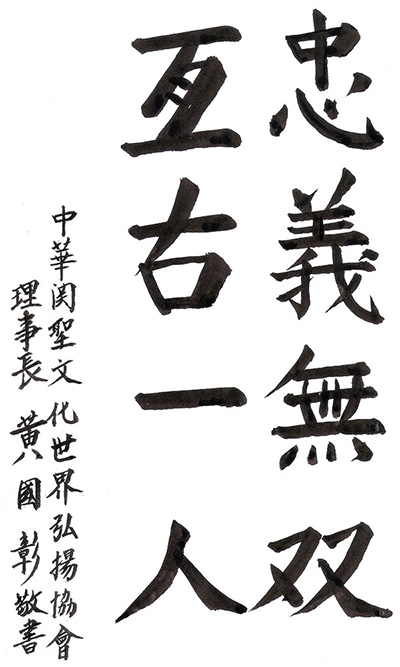 忠義無双
亙古一人
中華関聖文化世界弘揚協會
理事長 黃國彰敬書